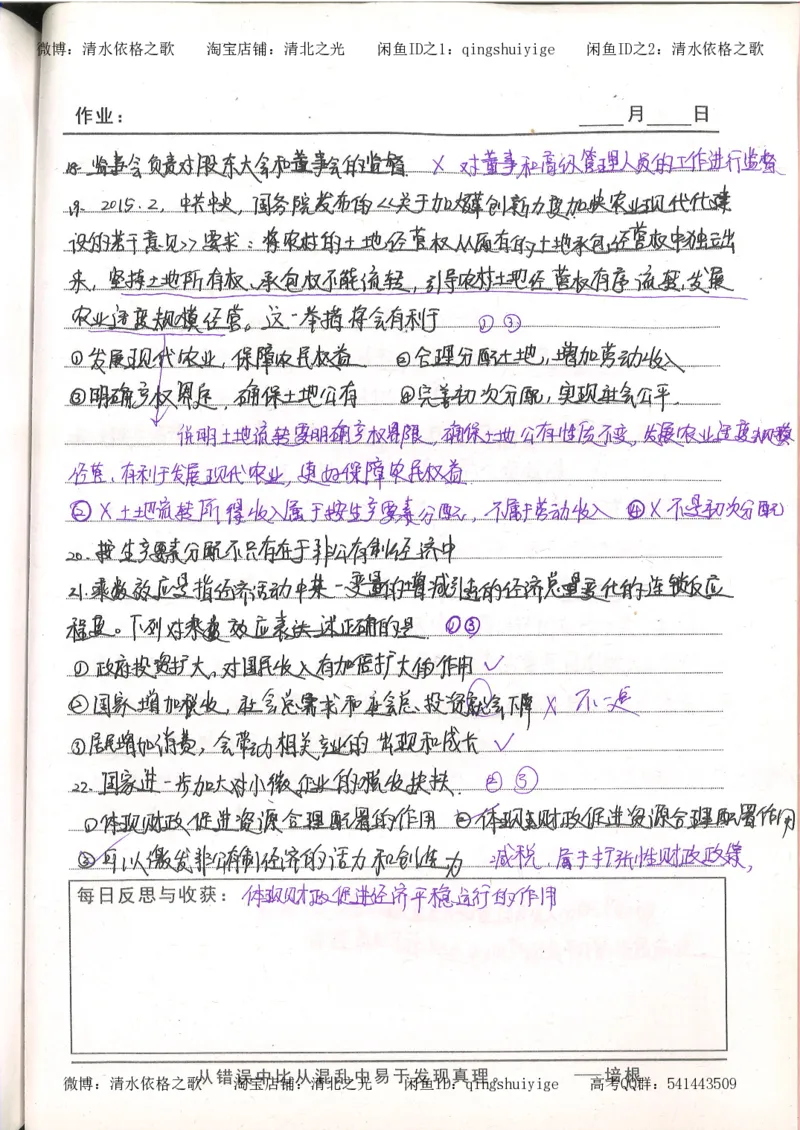 微博：清水依格之歌 淘宝店铺：清北之光 闲鱼ID之1：qingshuiyige 闲鱼ID之2：清水依格之歌
作业： 月 日
18. 监事会负责对股东大会和董事会的监督. × 对董事和高级管理人员的工作进行监督
19. 2015.2, 中共中央, 国务院发布的《关于加大改革创新力度加快农业现代化建
设的若干意见》要求：将农村的土地经营权从原有的土地承包经营权中独立出
来, 坚持土地所有权、承包权不能流转, 引导农村土地经营权有序流转, 发展
农业适度规模经营。这一举措将会有利于 ①③
①发展现代农业, 保障农民权益 ②合理分配土地, 增加劳动收入
③明确产权界定, 确保土地公有 ④完善初次分配, 实现社会公平.
说明土地流转要明确产权界限, 确保土地公有性质不变, 发展农业适度规模
经营, 有利于发展现代农业, 更好保障农民权益
②×土地流转所得收入属于按生产要素分配, 不属于劳动收入 ④×不是初次分配
20. 按生产要素分配不只存在于非公有制经济中
21. 乘数效应是指经济活动中某一变量的增减引起的经济总量变化的连锁反应
程度。下列对乘数效应表达述正确的是 ①③
①政府投资扩大, 对国民收入有加倍扩大的作用 ✓
②国家增加税收, 社会总需求和社会总投资就会下降 × 不一定
③居民增加消费, 会带动相关产业的出现和成长 ✓
22. 国家进一步加大对小微企业的税收扶持. ②③
①体现财政促进资源合理配置的作用 ②体现财政促进资源合理配置作用
③可以激发非公有制经济的活力和创造力 减税, 属于扩张性财政政策,
每日反思与收获：体现财政促进经济平稳运行的作用
从错误中比从混乱中易于发现真理。 ——培根
微博：清水依格之歌 淘宝店铺：清北之光 闲鱼ID：qingshuiyige 高考QQ群：541443509